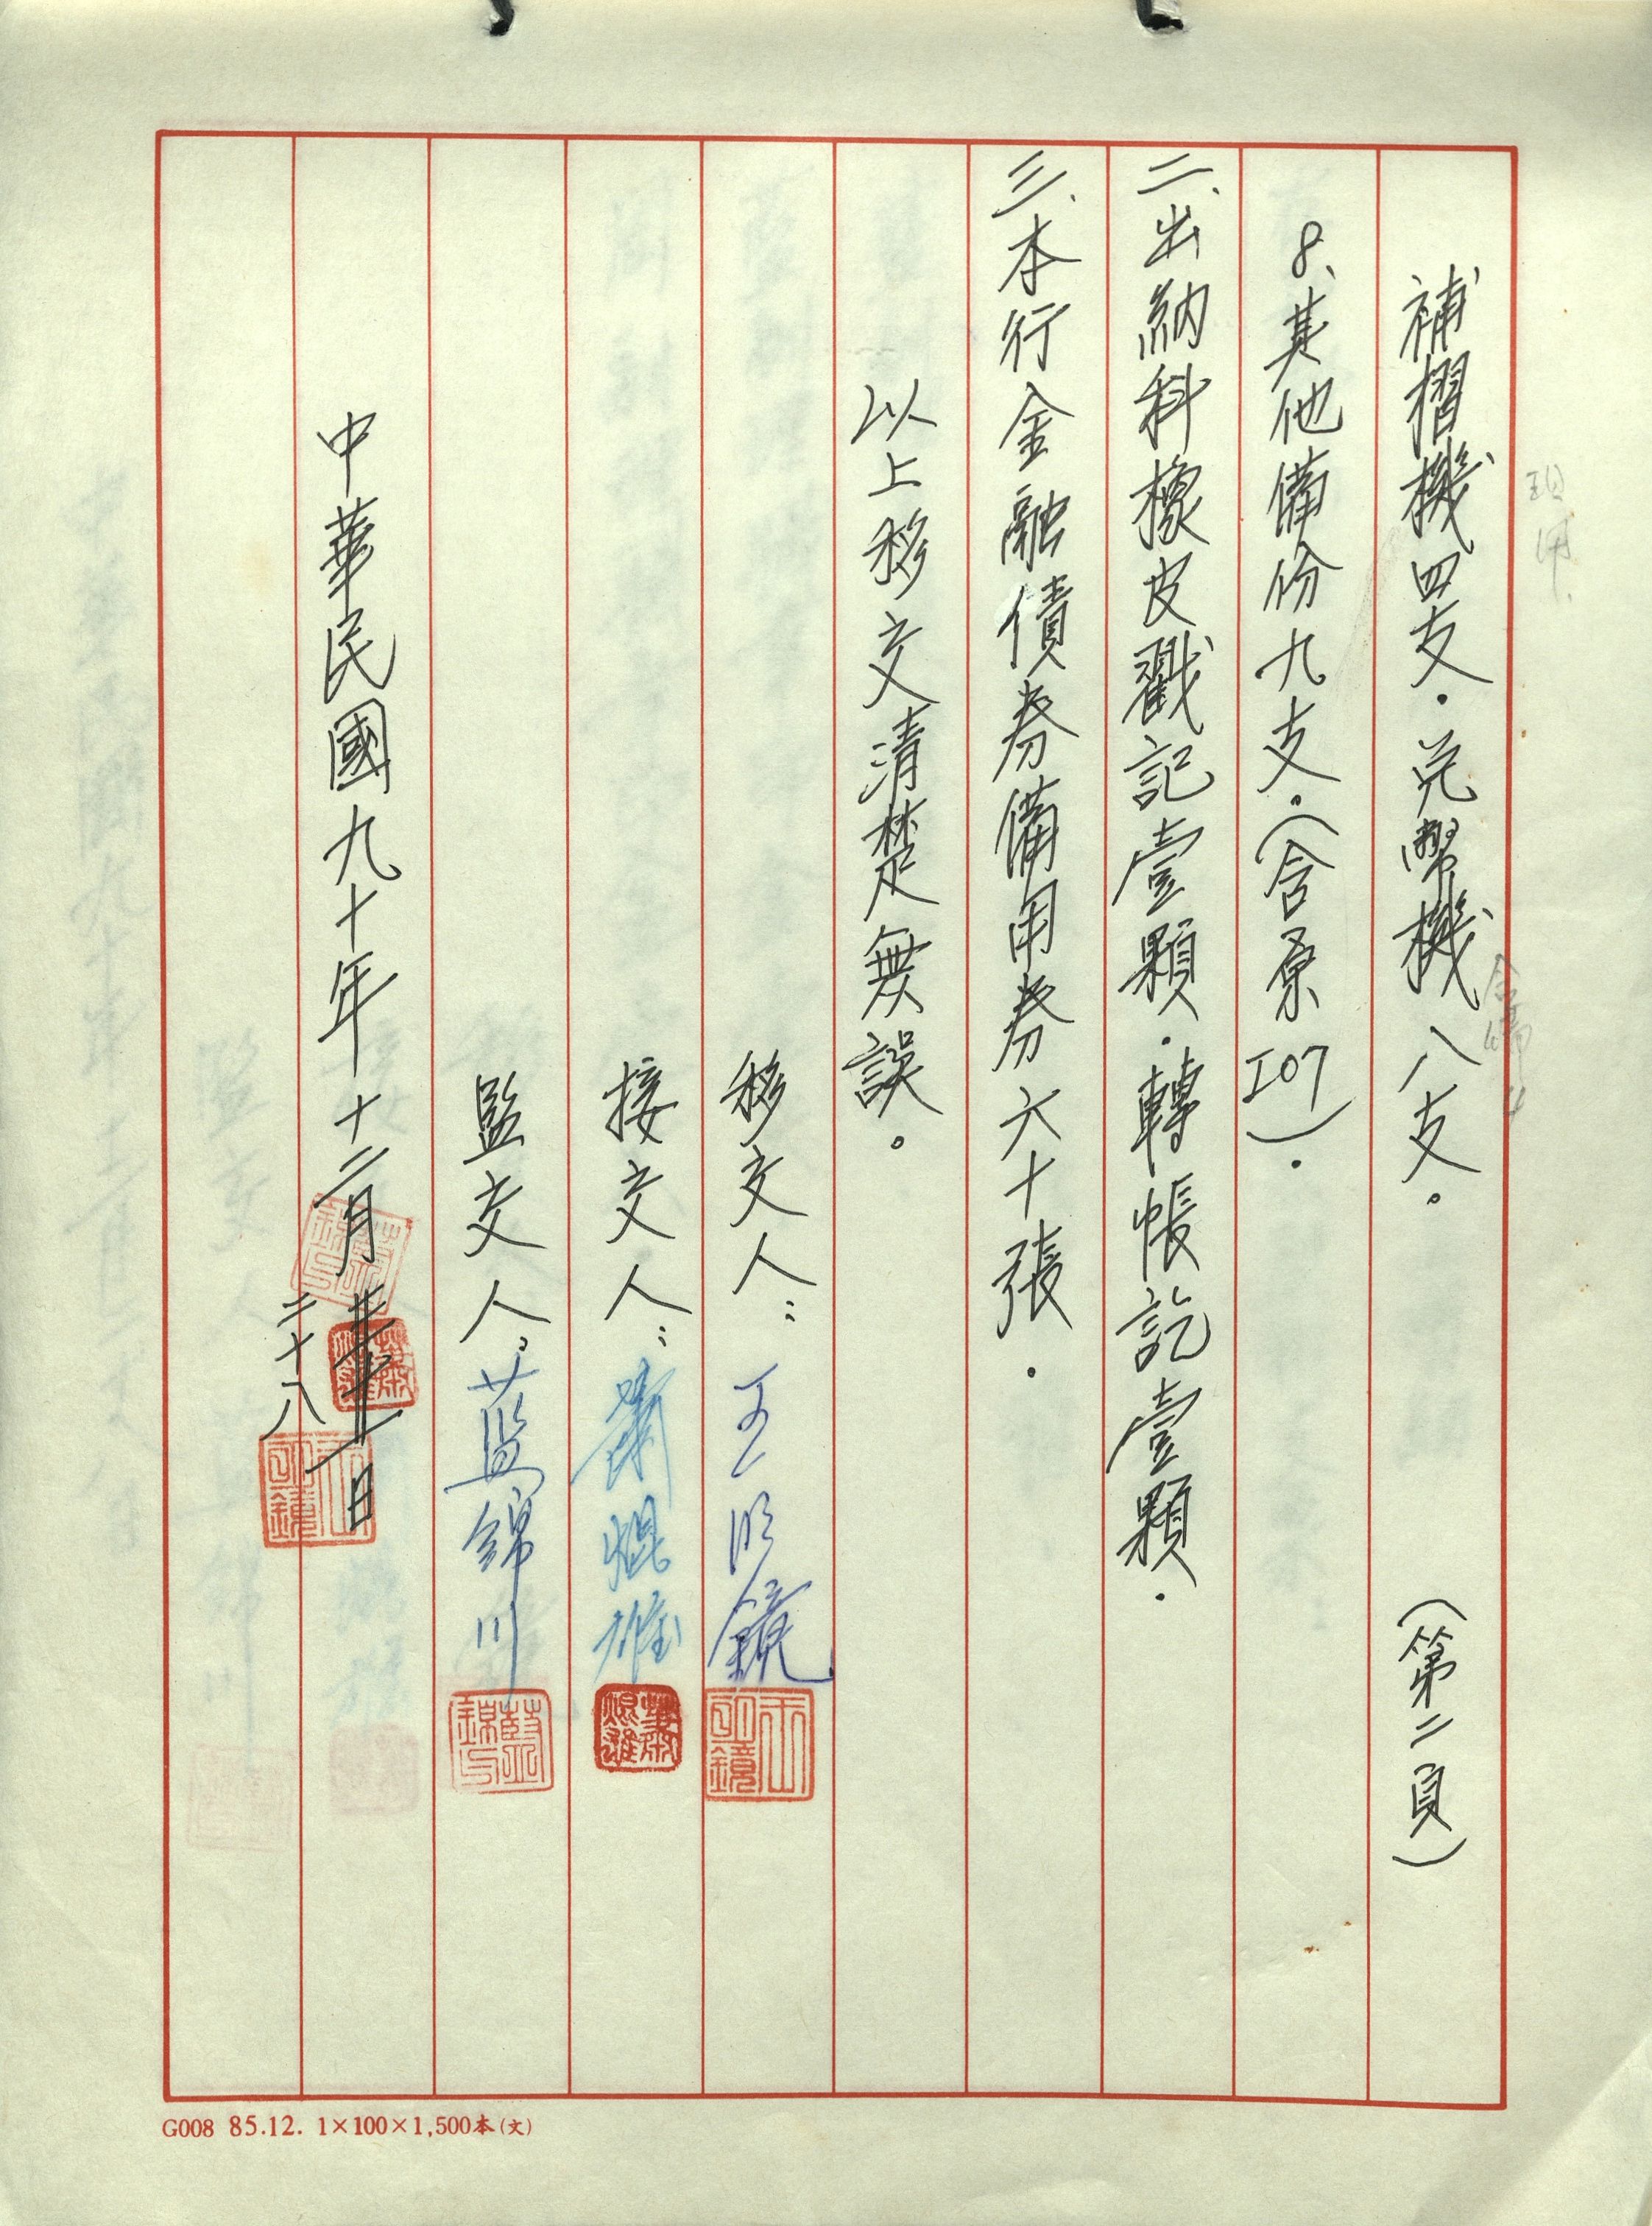 補摺機四支．兌幣機八支。 （第二頁）
8、其他備份九支．（含原I07）．
二、出納科橡皮戳記壹顆．轉帳訖壹顆．
三、本行金融債券備用券六十張．
以上移交清楚無誤。
移交人：王明鏡
接交人：焜雄
監交人：藍錦川
中華民國九十年十二月日
二十八
G008 85.12. 1×100×1,500本(文)